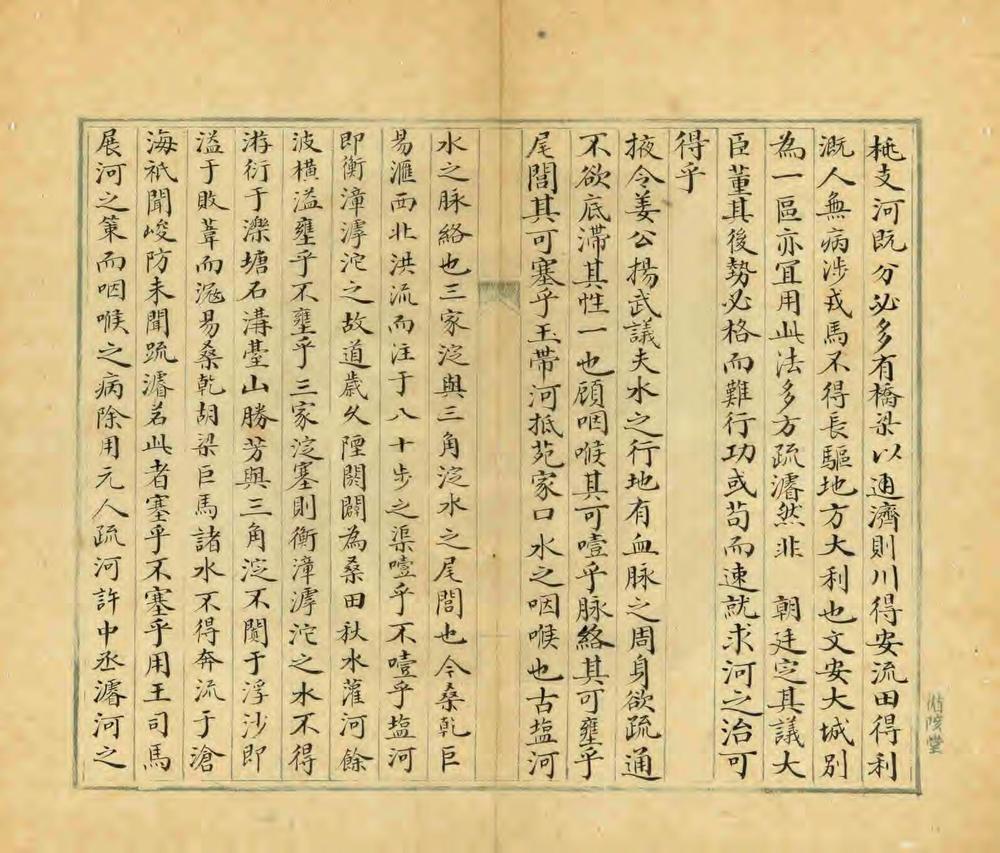 桃支河既分必多有橋梁以通濟則川得安流田得利
溉人無病涉戎馬不得長驅地方大利也文安大城別
為一區亦宜用此法多方疏濬然非　朝廷定其議大
臣董其後勢必格而難行功或苟而速就求河之治可
得乎
掖令姜公揚武議夫水之行地有血脉之周身欲疏通
不欲底滯其性一也顧咽喉其可噎乎脉絡其可壅乎
尾閭其可塞乎玉帶河抵苑家口水之咽喉也古塩河
水之脉絡也三家淀與三角淀水之尾閭也今桑乾巨
易滙西北洪流而注于八十步之渠噎乎不噎乎塩河
即衡漳滹沱之故道歲久陻閼闢為桑田秋水灌河餘
波橫溢壅乎不壅乎三家淀塞則衡漳滹沱之水不得
游衍于濼塘石溝臺山勝芳與三角淀不閴于浮沙即
溢于敗葦而滱易桑乾胡梁巨馬諸水不得奔流于滄
海祇聞峻防未聞疏濬若此者塞乎不塞乎用王司馬
展河之策而咽喉之病除用元人疏河許中丞濬河之